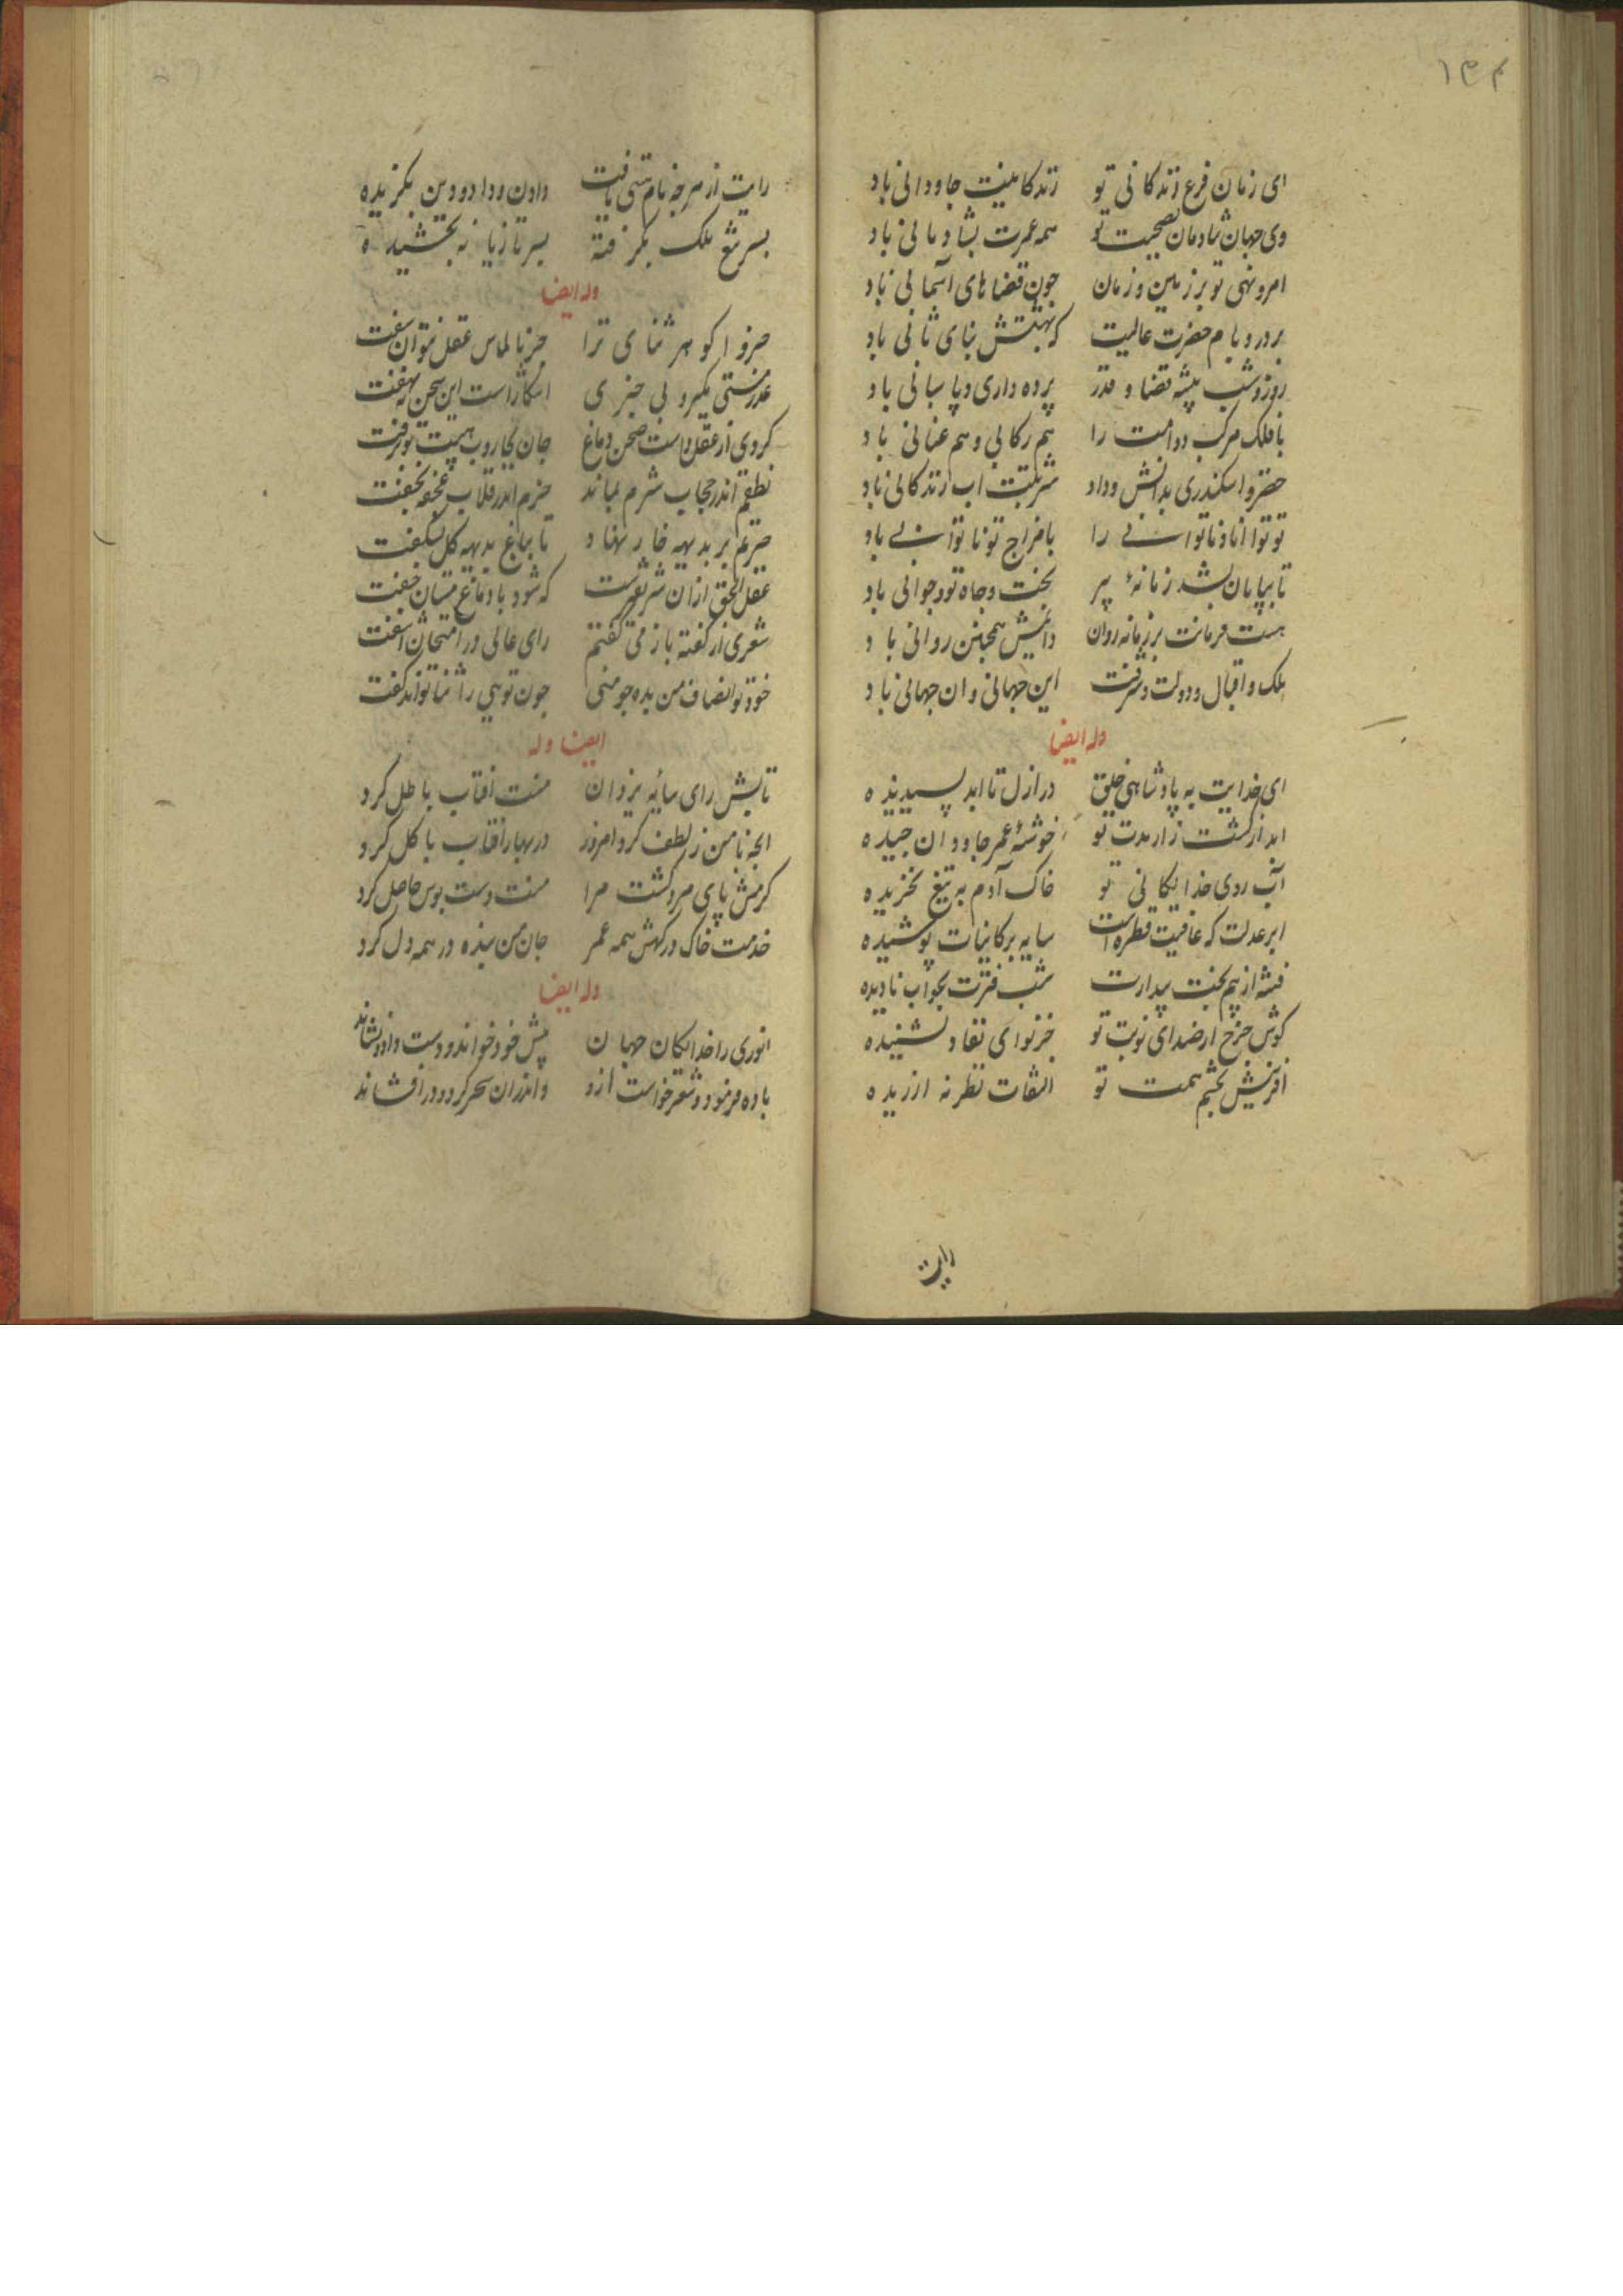 ۱۳۴
ای زمان فرع زندکانی تو زندکانیت جاودانی باد
وی جهان شادمان بصحبت تو همه عمرت بشادمانی باد
امر و نهی تو بر زمین و زمان چون قضاهای آسمانی باد
بر در و بام حضرت عالیت که بهشتش بنای ثانی باد
روز و شب پیشه قضا و قدر پرده داری و پاسبانی باد
با فلک مرکب دوامت را هم رکابی و هم عنانی باد
خضر و اسکندری بدانش و داد شربتت اب زندکانی باد
تو توانا و ناتوانی را با مزاج تو ناتوانی باد
تا بپایان رسد زمانهٔ پیر بخت و جاه تو در جوانی باد
هست فرمانت بر زمانه روان دایمش همچنین روانی باد
ملک و اقبال و دولت و شرفت این جهانی و ان جهانی باد
وله ایضا
ای خدایت به پادشاهی خلق در ازل تا ابد پسندیده
ابد از کشت زار مدت تو خوشهٔ عمر جاودان چیده
آب روی خدایکانی تو خاک آدم به تیغ بخریده
ابر عدلت که عافیت قطره است سایه بر کاینات پوشیده
فتنه از بیم بخت بیدارت شب فترت بخواب نادیده
کوش چرخ از صدای نوبت تو جز نوای نفاد نشنیده
افرینش بچشم همت تو التفات نظر نه ارزیده
رایت
رایت از هرچه نام هستی یافت دادن و داد و دین بکزیده
بسر تیغ ملک بکرفته بسر تازیانه بخشیده
وله ایضا
خسروا کوهر ثنای ترا جز بالماس عقل نتوان سفت
عذر مستی مکیر و بی خبری اشکاراست این سخن نهفت
کردی از عقل داشت صحن دماغ جان بجاروب هیبت تو برفت
نطقم اندر حجاب شرم بماند خردم اندر نقاب غنچه بخفت
خسروم بر بدیهه خار نهاد تا بباغ بدیهه کل نشکفت
عقل الحق ازان شریفترست که شود با دماغ مستان جفت
شعری از کفته باز می کفتم رای عالی در امتحان اشفت
خود تو انصاف من بده چو منی چون تویی را ثنا تواند کفت
ایضا وله
تابش رای سایه یزدان منت افتاب باطل کرد
انچه با من ز لطف کرد امروز در بهار افتاب با کل کرد
کرمش پای مرد کشت مرا منت دست بوس حاصل کرد
خدمت خاک درکهش همه عمر جان من بنده در همه دل کرد
وله ایضا
انوری را خدایکان جهان پیش خود خواند و دست داد و نشاند
باده فرمود و شعر خواست ازو واندران سحر کرد و در افشاند